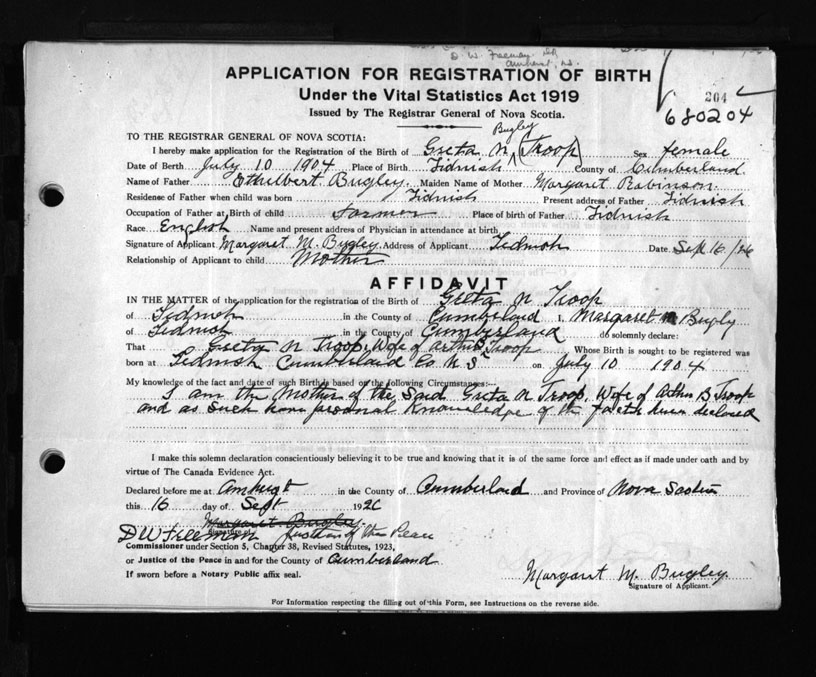 D. W. Freeman
Amherst, N.S.
APPLICATION FOR REGISTRATION OF BIRTH
Under the Vital Statistics Act 1919
204
Issued by The Registrar General of Nova Scotia.
680204
TO THE REGISTRAR GENERAL OF NOVA SCOTIA:
Bugley
I hereby make application for the Registration of the Birth of Greta N (Troop) Sex female
Date of Birth July 10 1904 Place of Birth Tidnish County of Cumberland
Name of Father Ethelbert Bugley Maiden Name of Mother Margaret Robinson
Residence of Father when child was born Tidnish Present address of Father Tidnish
Occupation of Father at Birth of child Farmer Place of birth of Father Tidnish
Race English Name and present address of Physician in attendance at birth
Signature of Applicant Margaret M. Bugley Address of Applicant Tidnish Date Sept 16/26
Relationship of Applicant to child Mother
AFFIDAVIT
IN THE MATTER of the application for the registration of the Birth of Greta N Troop
of Tidnish in the County of Cumberland I, Margaret M Bugly
of Tidnish in the County of Cumberland do solemnly declare:
That Greta N Troop, Wife of Arthur B Troop Whose Birth is sought to be registered was
born at Tidnish Cumberland Co N S on July 10 1904
My knowledge of the fact and date of such Birth is based on the following Circumstances:—
I am the Mother of the Said Greta N Troop, Wife of Arthur B Troop
and as such have personal Knowledge of the facts herein declared
I make this solemn declaration conscientiously believing it to be true and knowing that it is of the same force and effect as if made under oath and by
virtue of The Canada Evidence Act.
Declared before me at Amherst in the County of Cumberland and Province of Nova Scotia
this 16 day of Sept 1926
Margaret Bugley
D W Freeman Justice of the Peace
Commissioner under Section 5, Chapter 38, Revised Statutes, 1923,
or Justice of the Peace in and for the County of Cumberland
If sworn before a Notary Public affix seal.
Margaret M. Bugley
Signature of Applicant.
For Information respecting the filling out of this Form, see Instructions on the reverse side.